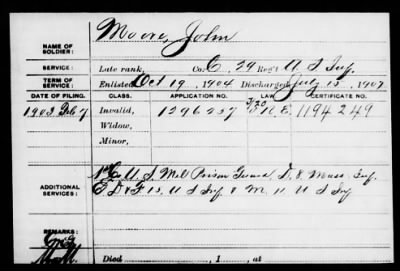 Moore, John
NAME OF SOLDIER:
SERVICE: Late rank, Co. C, 29 Reg't U S Inf.
TERM OF SERVICE: Enlisted Oct 19, 1904 Discharged July 15, 1907
DATE OF FILING. CLASS. APPLICATION NO. LAW. CERTIFICATE NO.
1908 Feb 7 Invalid, 1296237 1194249
Widow,
Minor,
ADDITIONAL SERVICES: 1st Co. U. S. Mil Prison Guard, D, 8, Mass Inf,
E, D & F 15, U S Inf & M, 11 U S Inf
REMARKS:
Died , 1 , at